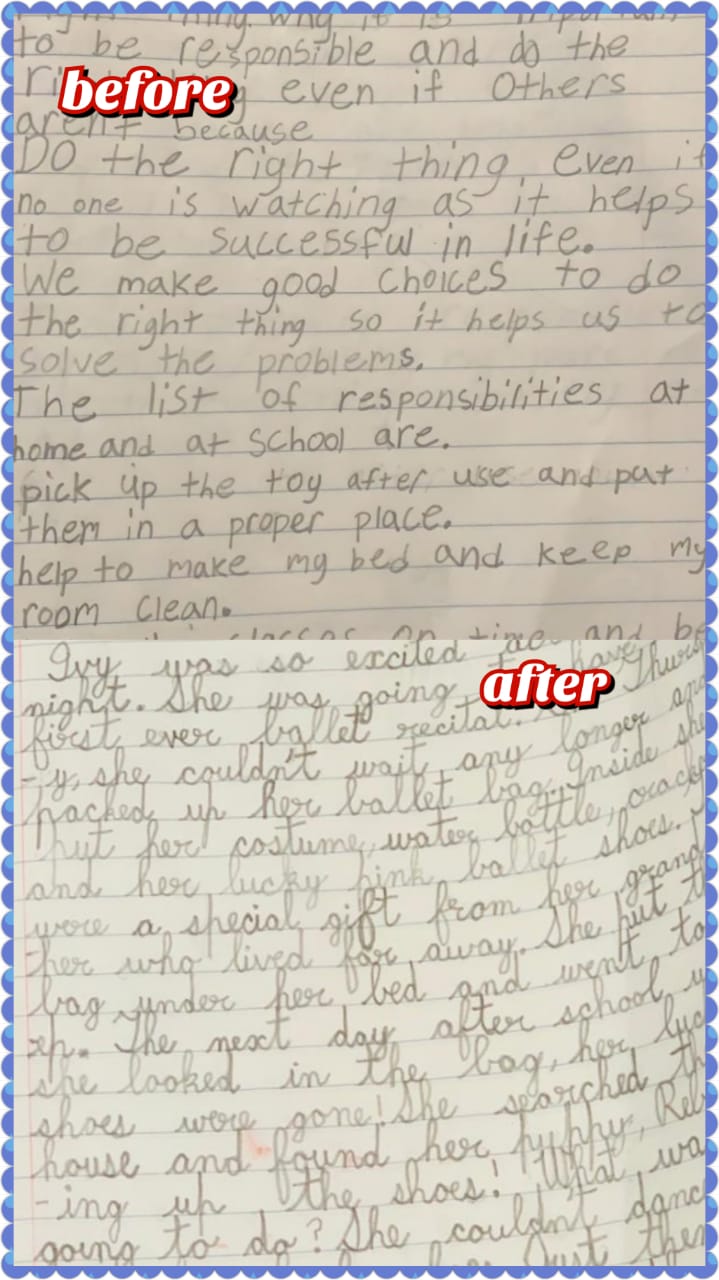 to be responsible and do the
before
even if Others
aren't because
DO the right thing even if
no one is watching as it helps
to be successful in life.
We make good choices to do
the right thing so it helps us to
solve the problems.
The list of responsibilities at
home and at school are.
pick up the toy after use and put
them in a proper place.
help to make my bed and keep my
room clean.
on time and be
Ivy was so excited
after
night. She was going have
first ever ballet recital.
-y, she couldn't wait any longer and
packed up her ballet bag. Inside she
put her costume, water bottle,
and her lucky pink ballet shoes.
were a special gift from her grand
-her who lived far away. She put
bag under her bed and went to
The next day after school
she looked in the bag, her
shoes were gone! She searched
house and found her puppy,
-ing up the shoes! What
going to do? She couldn't danc
Just then